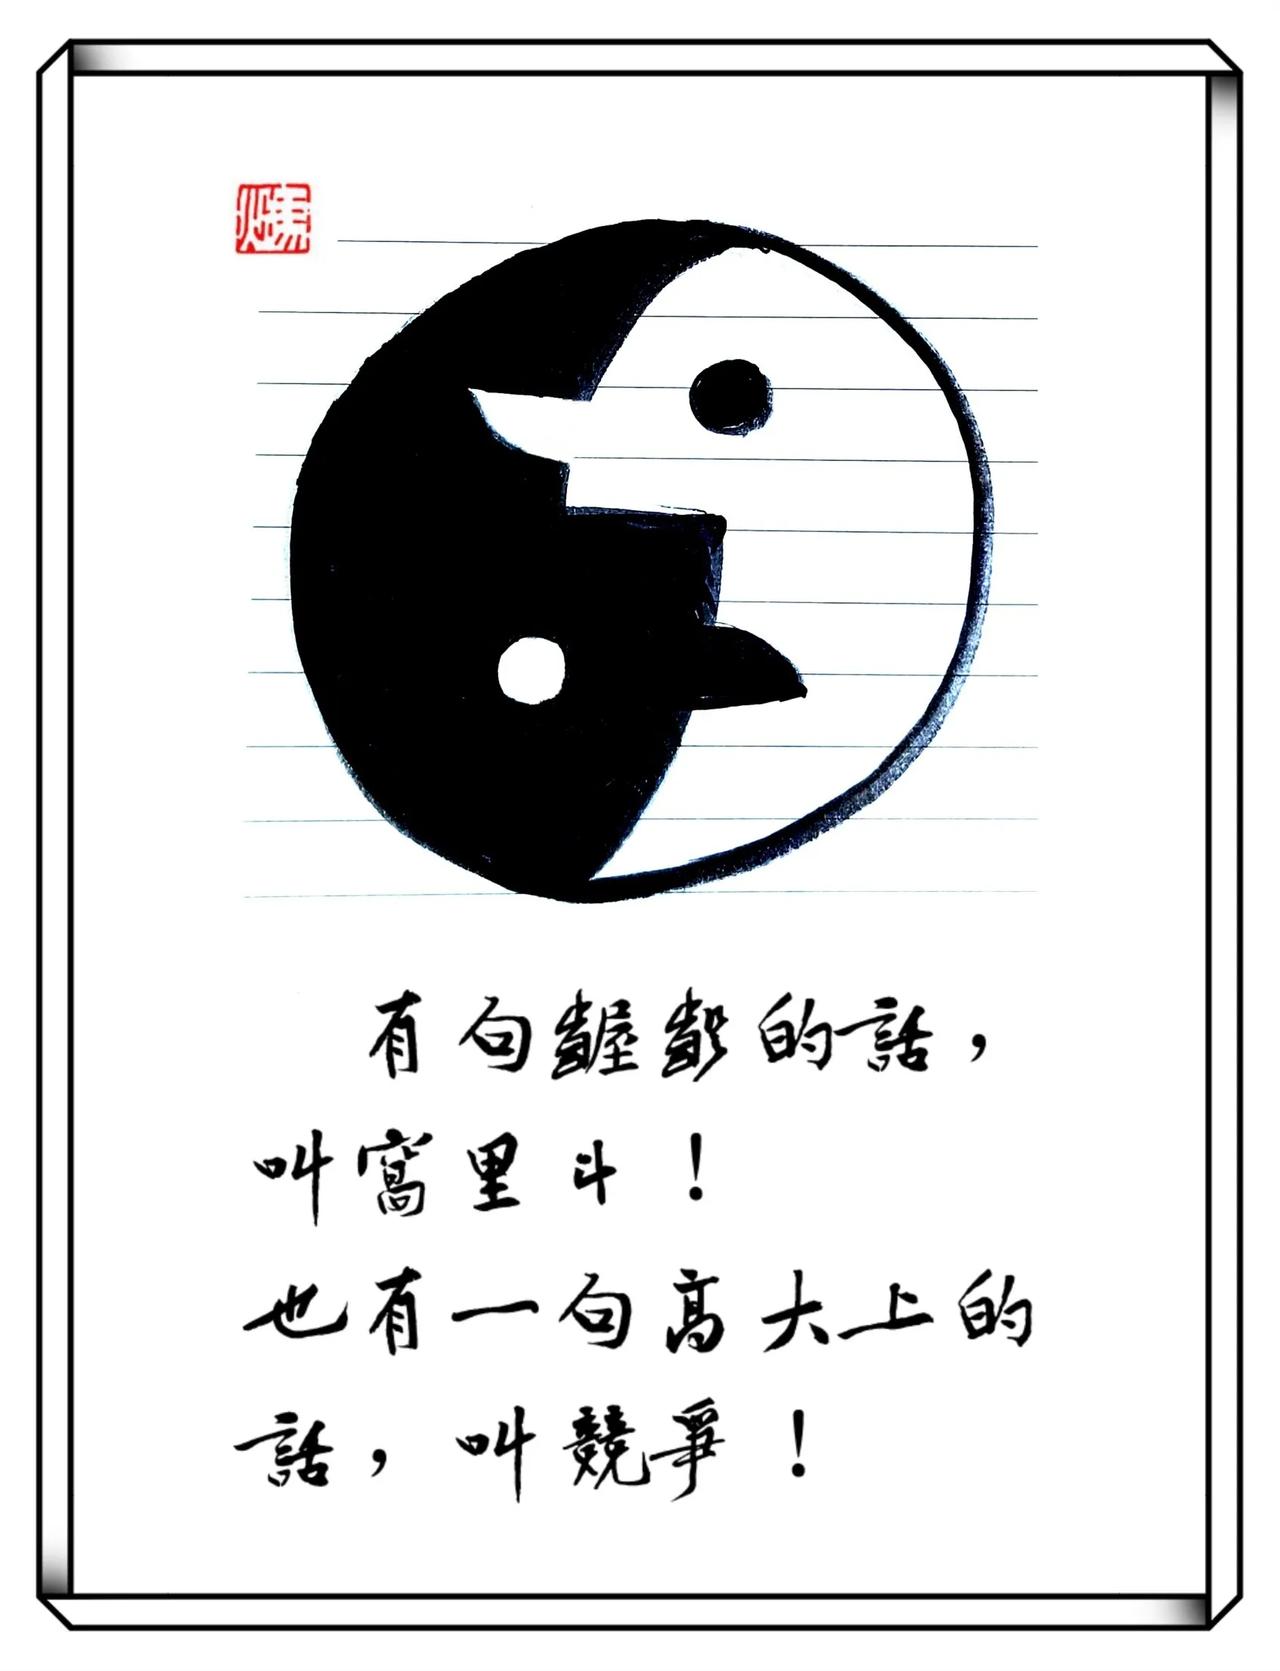 有句齷齪的話，
叫窩里斗！
也有一句高大上的
話，叫競爭！